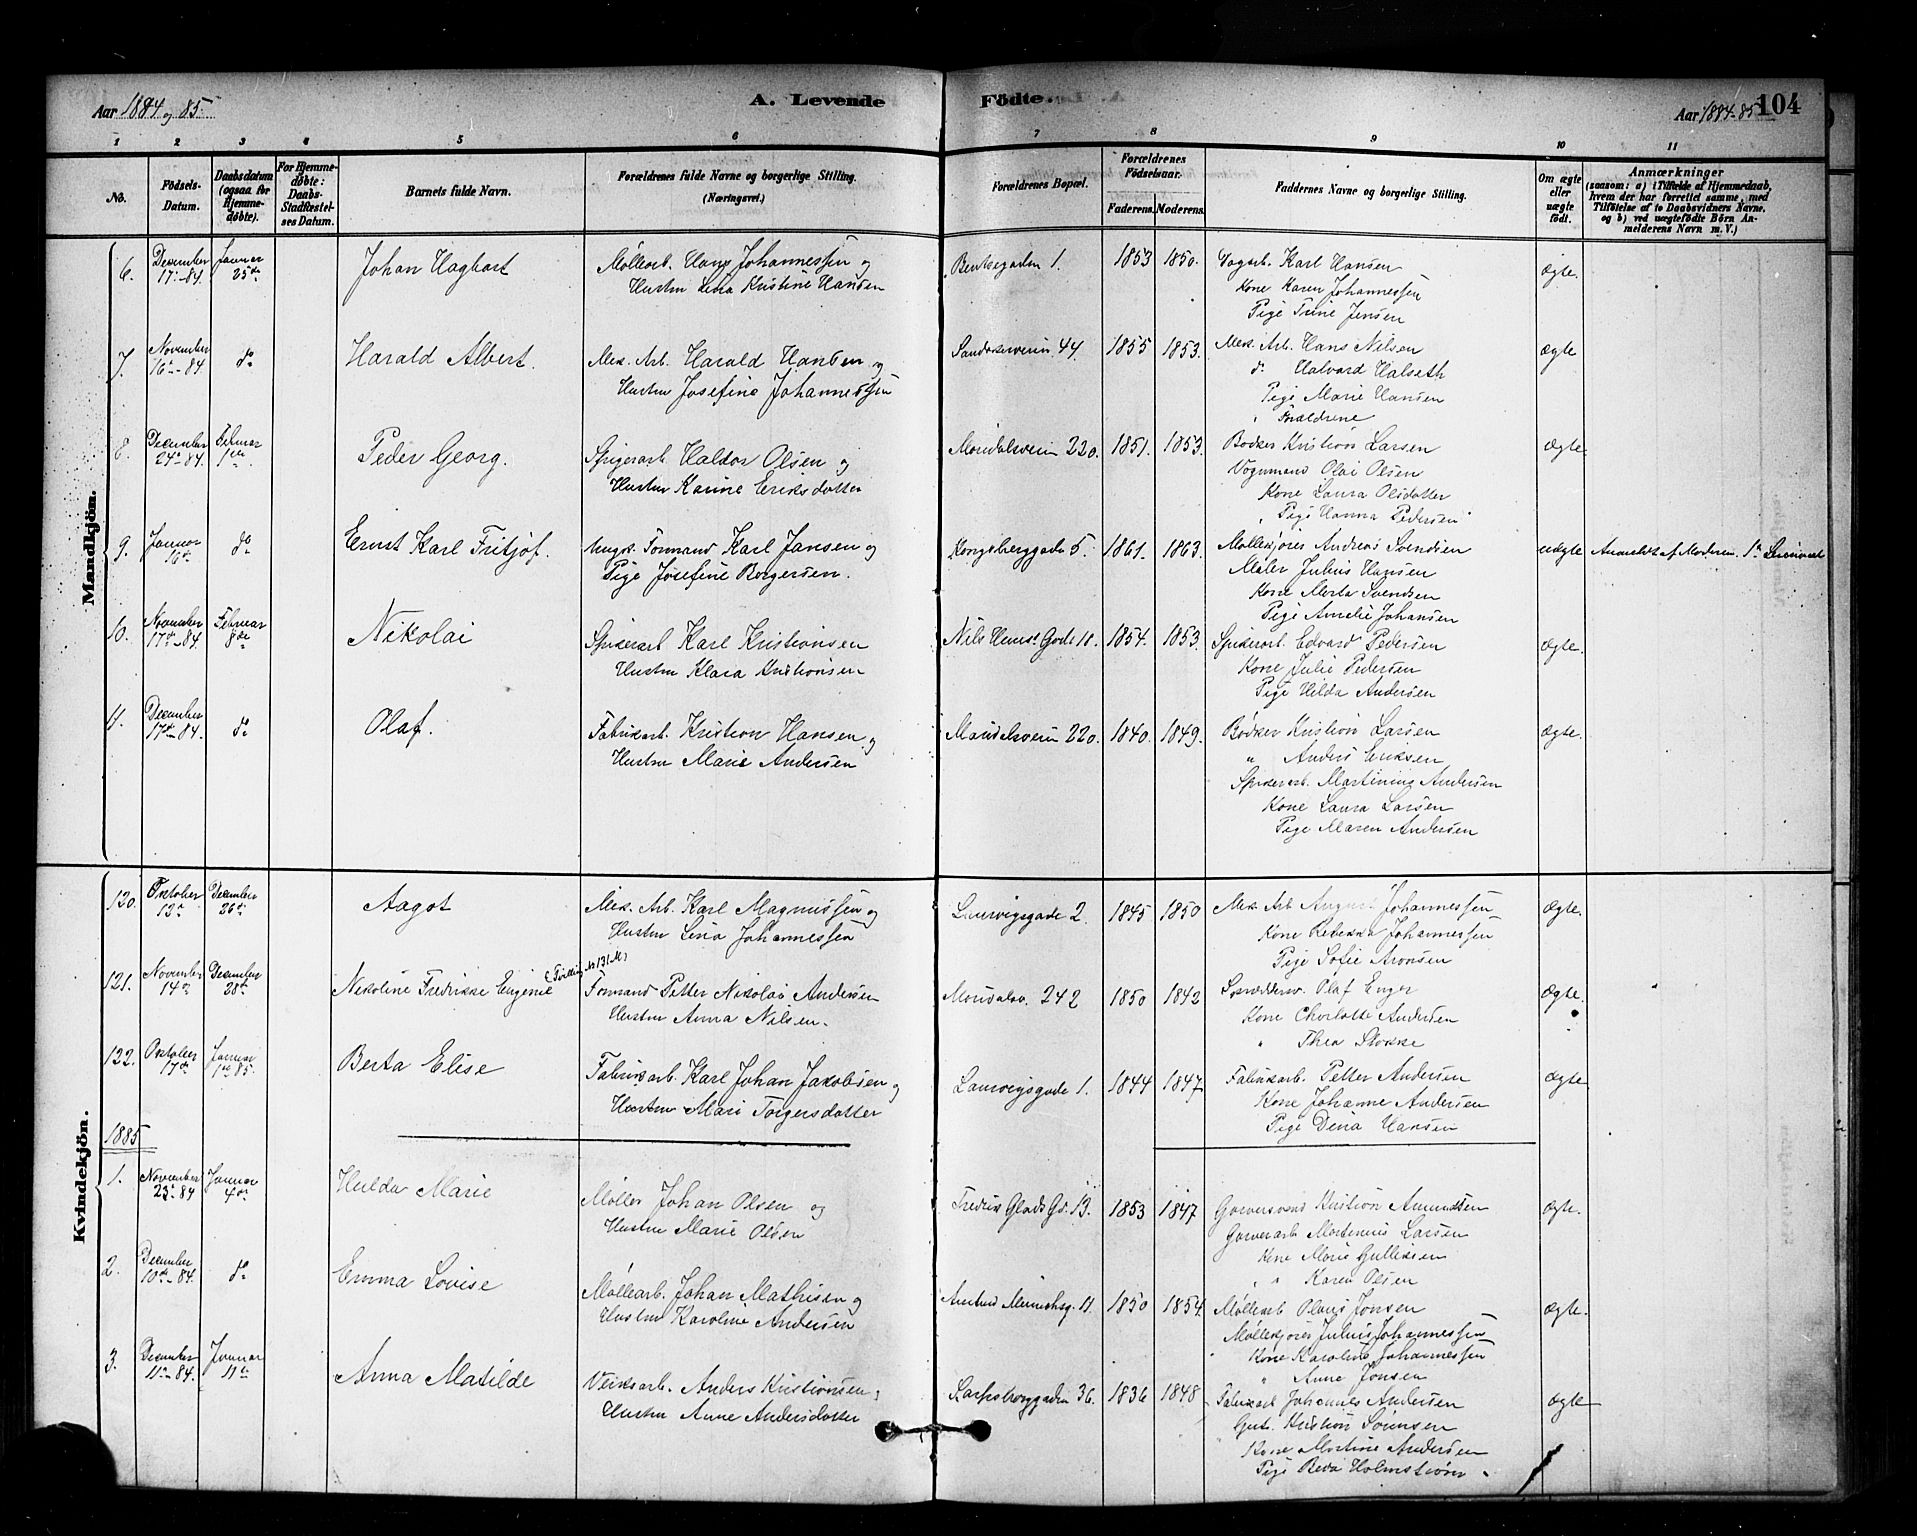 Aar 1884 og 85.
A. Levende
Födte.
Aar 1884-85
104
1 2 3 4 5 6 7 8 9 10 11
No.
Födsels-Datum.
Daabsdatum (ogsaa for Hjemmedöbte).
For Hjemmedöbte: Daabs-Stadfæstelses Datum.
Barnets fulde Navn.
Forældrenes fulde Navne og borgerlige Stilling.
(Næringsvei.)
Forældrenes Bopæl.
Forældrenes Födselsaar.
Faderens.
Moderens.
Faddernes Navne og borgerlige Stilling.
Om ægte eller uægte födt.
Anmærkninger
(saasom: a) i Tilfælde af Hjemmedaab, hvem der har forrettet samme, med Tilföielse af to Daabsvidners Navne, og b) ved uægtefödte Börn Anmelderens Navn m. V.)
Mandkjön.
6. December 17de 84. Januar 25de Johan Hagbart Møllearb. Hans Johannessen og Bentsegaden 1. 1853 1850. Dagarb. Karl Hansen ægte
Hustru Lena Kristine Hansen
Kone Karen Johannessen
Pige Trine Jensen
7. November 16de 84 do Harald Albert. Mek. Arb. Harald Hansen og Sandakerveien 44. 1855 1853. Mek. Arb. Hans Nilsen ægte
Hustru Josefine Johannessen
do Halvard Halseth
Pige Marie Hansen
Forældrene
8. December 24de 84. Februar 1ste Peder Georg. Spigerarb. Haldor Olsen og Maridalsveien 220. 1851. 1853. Bødker Kristian Larsen ægte.
Hustru Karine Eriksdatter
Vognmand Olai Olsen
Kone Laura Olsdatter
Pige Hanna Pedersen
9. Januar 16de do Ernst Karl Fritjof. Ungk. Formand Karl Jansen og Kongsberggade 5. 1861. 1863. Møllekjører Andreas Svendsen uægte Anmeldt af Moderen.
Pige Josefine Borgersen.
Maler Julius Hansen
Kone Marta Svendsen
Pige Amelie Johansen
10. November 17de 84 Februar 8de Nikolai Spigerarb. Karl Kristiansen 1854. 1853. Spigerarb. Edvard Pedersen ægte.
Hustru Klara Kristiansen
Kone Julie Pedersen
Pige Hilda Andersen
11. December 17de 84. do Olaf. Fabrikarb. Kristian Hansen og Maridalsveien 220. 1840. 1849. Bødker Kristian Larsen ægte.
Hustru Marie Andersen
" Anders Eriksen
Spigerarb. Martinius Andersen
Kone Laura Larsen
Pige Maren Andersen
Kvindekjön.
120. Oktober 13de December 26de Aagot Mek. Arb. Karl Magnussen og Laurvigsgade 2. 1845 1850 Mek. Arb August Johannessen ægte.
Hustru Lena Johannessen
Kone Rebekka Johannessen
Pige Sofie Aronsen
121. November 14de December 28de Nikoline Fredrikke Eugenie (Tvilling No 131 M) Formand Petter Nikolai Andersen Maridalsv. 242 1850 1842 Olaf Enger ægte.
Hustru Anna Nilsen.
Kone Charlotte Andersen
" Thea Stokke
122. Oktober 17de Januar 1ste 85. Berta Elise Fabrikarb. Karl Johan Jakobsen og Laurvigsgade 1. 1844 1847. Fabrikarb. Petter Andersen ægte
Hustru Mari Torgersdatter
Kone Johanne Andersen
Pige Dina Hansen
1885
1. November 23de 84 Januar 4de Hulda Marie Møller Johan Olsen og Fredrik Glads Gd. 13. 1853 1847 Garversvend Kristian Amundsen ægte.
Hustru Marie Olsen
Garverarb Martinius Larsen
Kone Marie Gulliksen
" " Karen Olsen
2. December 10de 84. do Emma Lovise Møllearb. Johan Mathisen og Amtmd Meinichsg. 11. 1850 1854. Møllearb Olaus Jonsen ægte.
Hustru Karoline Andersen
Møllekjører Julius Johannessen
Kone Karoline Johannessen
" Anne Jonsen
3. December 11de 84. Januar 11te Anna Matilde Verksarb. Anders Kristiansen og Sarpsborggaden 36. 1836 1848 Fabrikarb Johannes Andersen ægte
Hustru Anne Andersdatter
Gart. Kristian Sörensen
Kone Martine Andersen
Pige Beda Holmström.